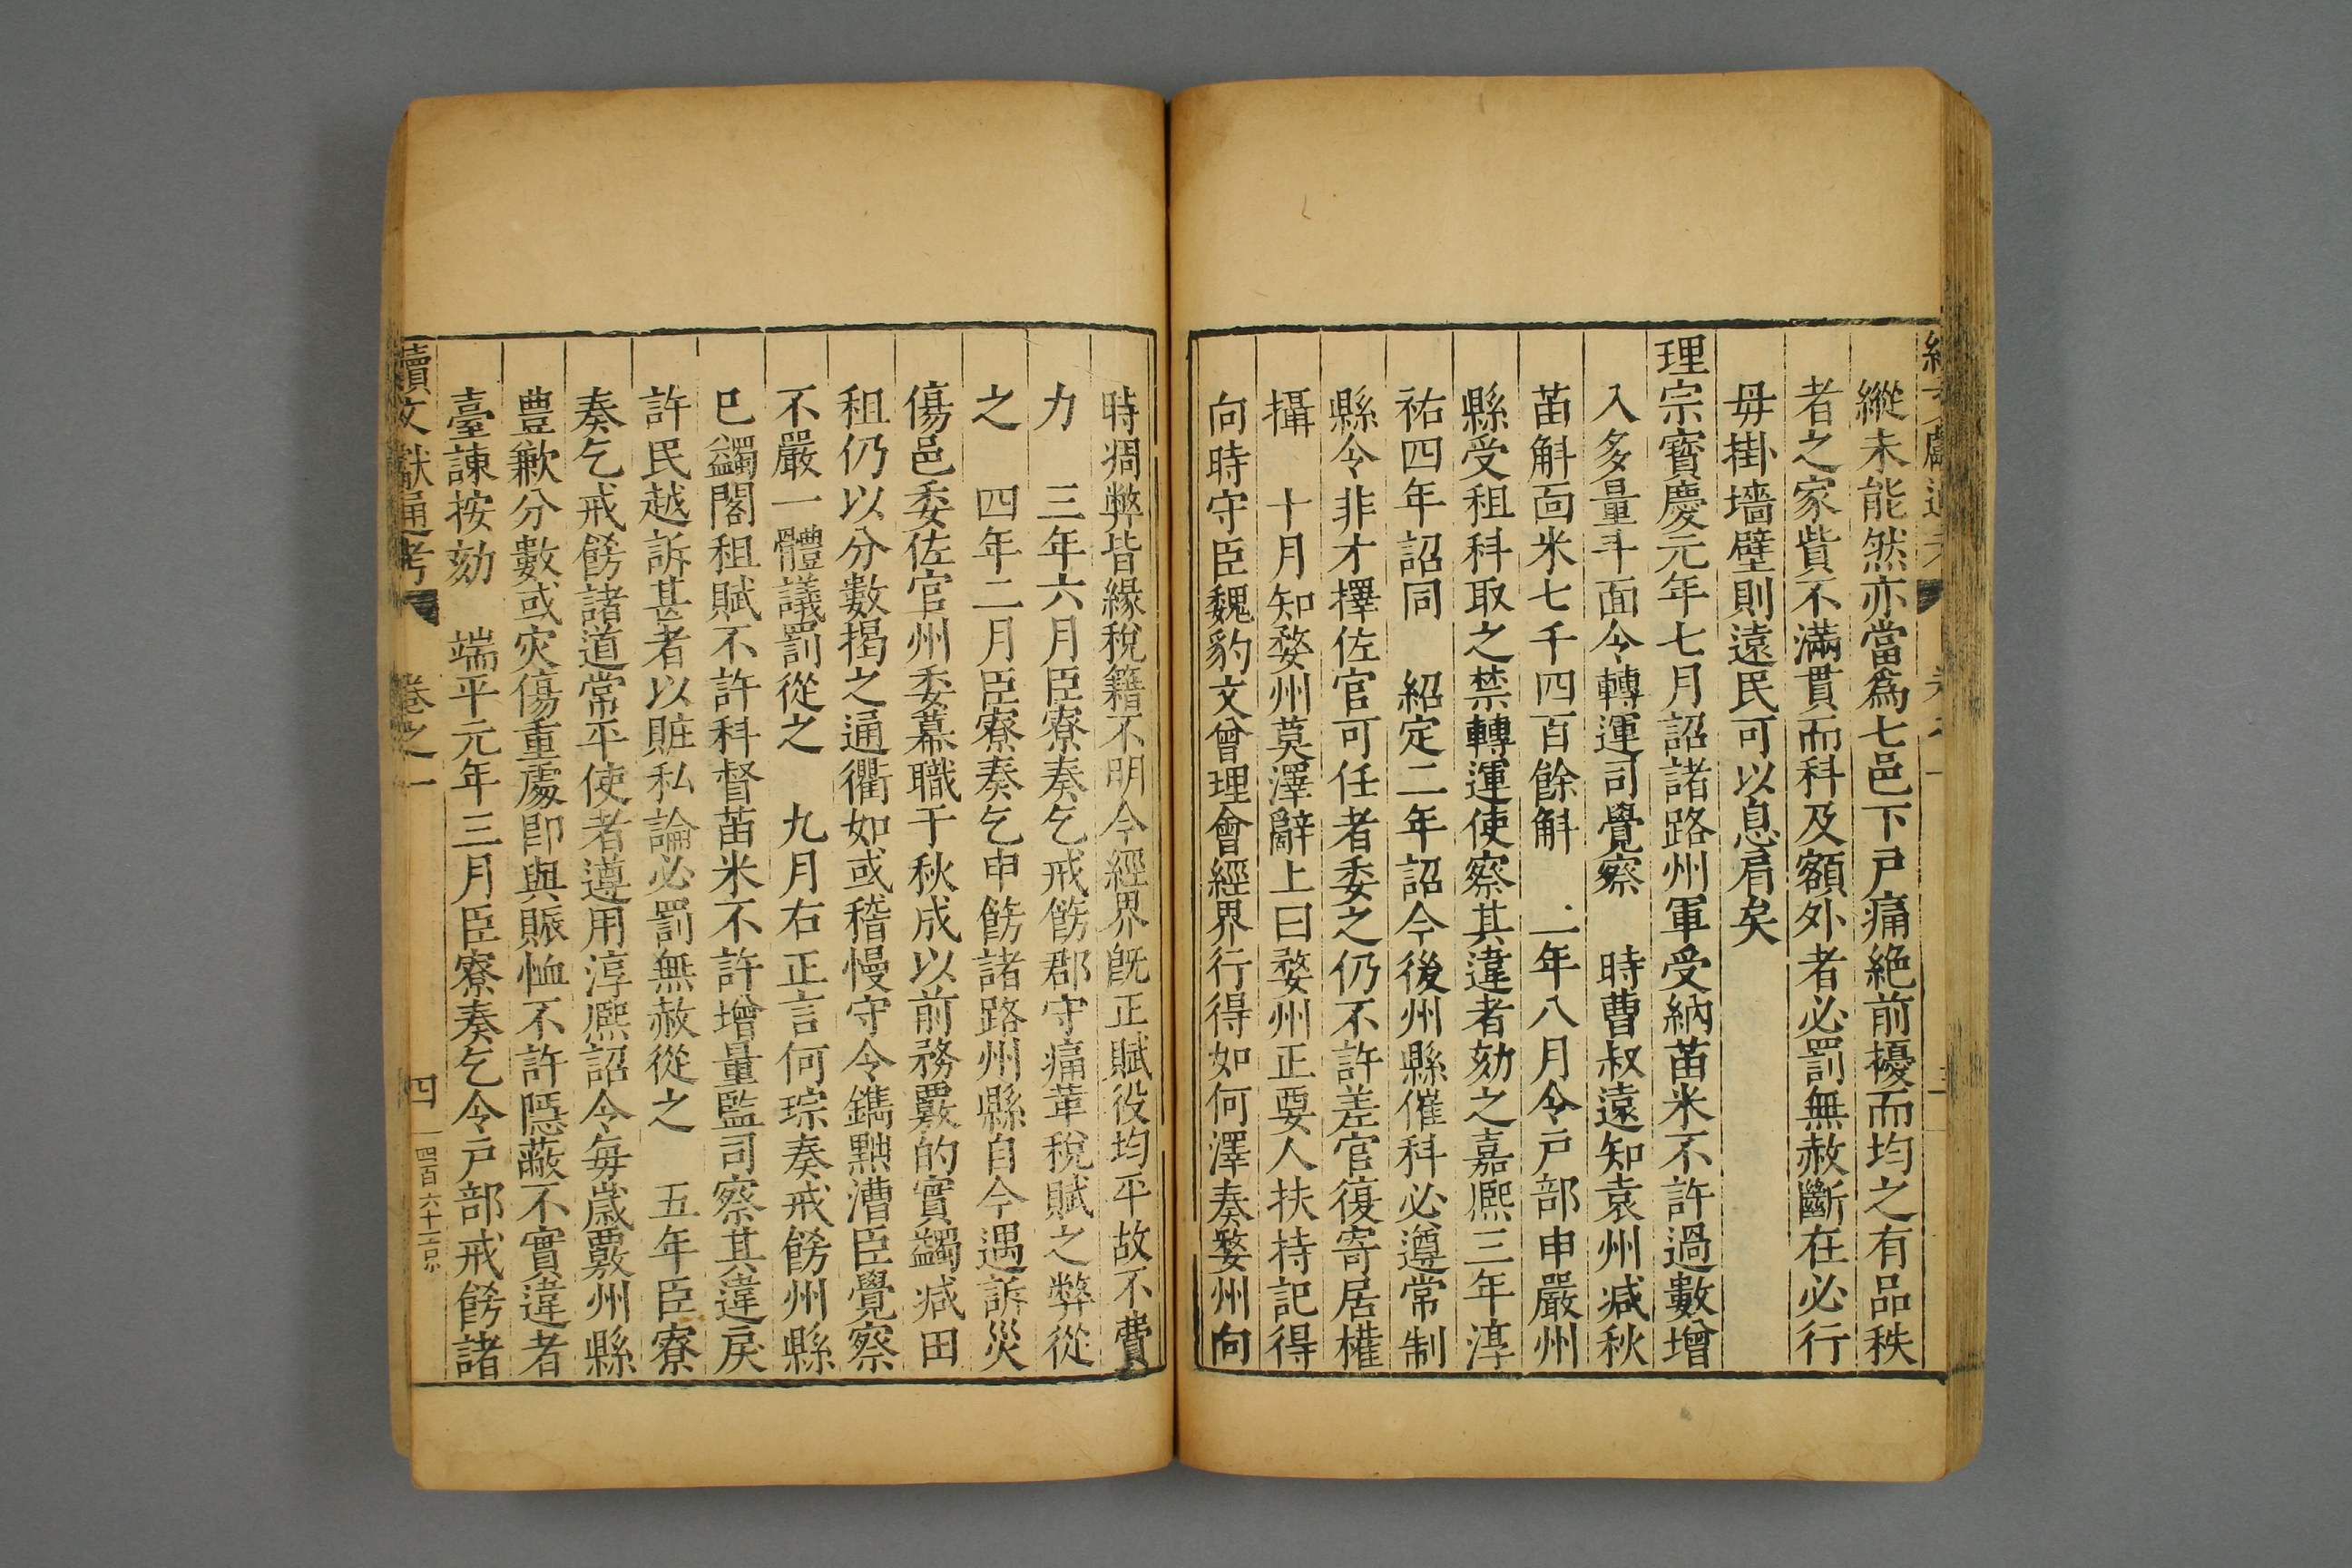 縱未能然亦當爲七邑下戸痛絶前擾而均之有品秩
者之家貲不滿貫而科及額外者必罰無赦斷在必行
毋掛墻壁則遠民可以息肩矣
理宗寳慶元年七月詔諸路州軍受納苗米不許過數增
入多量斗面令轉運司覺察　時曹叔遠知袁州减秋
苗斛面米七千四百餘斛　二年八月令戸部申嚴州
縣受租科取之禁轉運使察其違者劾之嘉熈三年淳
祐四年詔同　紹定二年詔今後州縣催科必遵常制
縣令非才擇佐官可任者委之仍不許差官復寄居權
攝　十月知婺州莫澤辭上曰婺州正要人扶持記得
向時守臣魏豹文曾理會經界行得如何澤奏婺州向
時凋弊皆緣稅籍不明今經界旣正賦役均平故不費
力　三年六月臣寮奏乞戒飭郡守痛革稅賦之弊從
之　四年二月臣寮奏乞申飭諸路州縣自今遇訴災
傷邑委佐官州委幕職干秋成以前務覈的實蠲减田
租仍以分數揭之通衢如或稽慢守令鐫黜漕臣覺察
不嚴一體議罰從之　九月右正言何琮奏戒飭州縣
巳蠲閣租賦不許科督苗米不許增量監司察其違戾
許民越訴甚者以賍私論必罰無赦從之　五年臣寮
奏乞戒飭諸道常平使者遵用淳熈詔令每歲覈州縣
豊歉分數或灾傷重處卽與賑恤不許隱蔽不實違者
臺諫按劾　端平元年三月臣寮奏乞令戸部戒飭諸
續文獻通考　卷之一　四